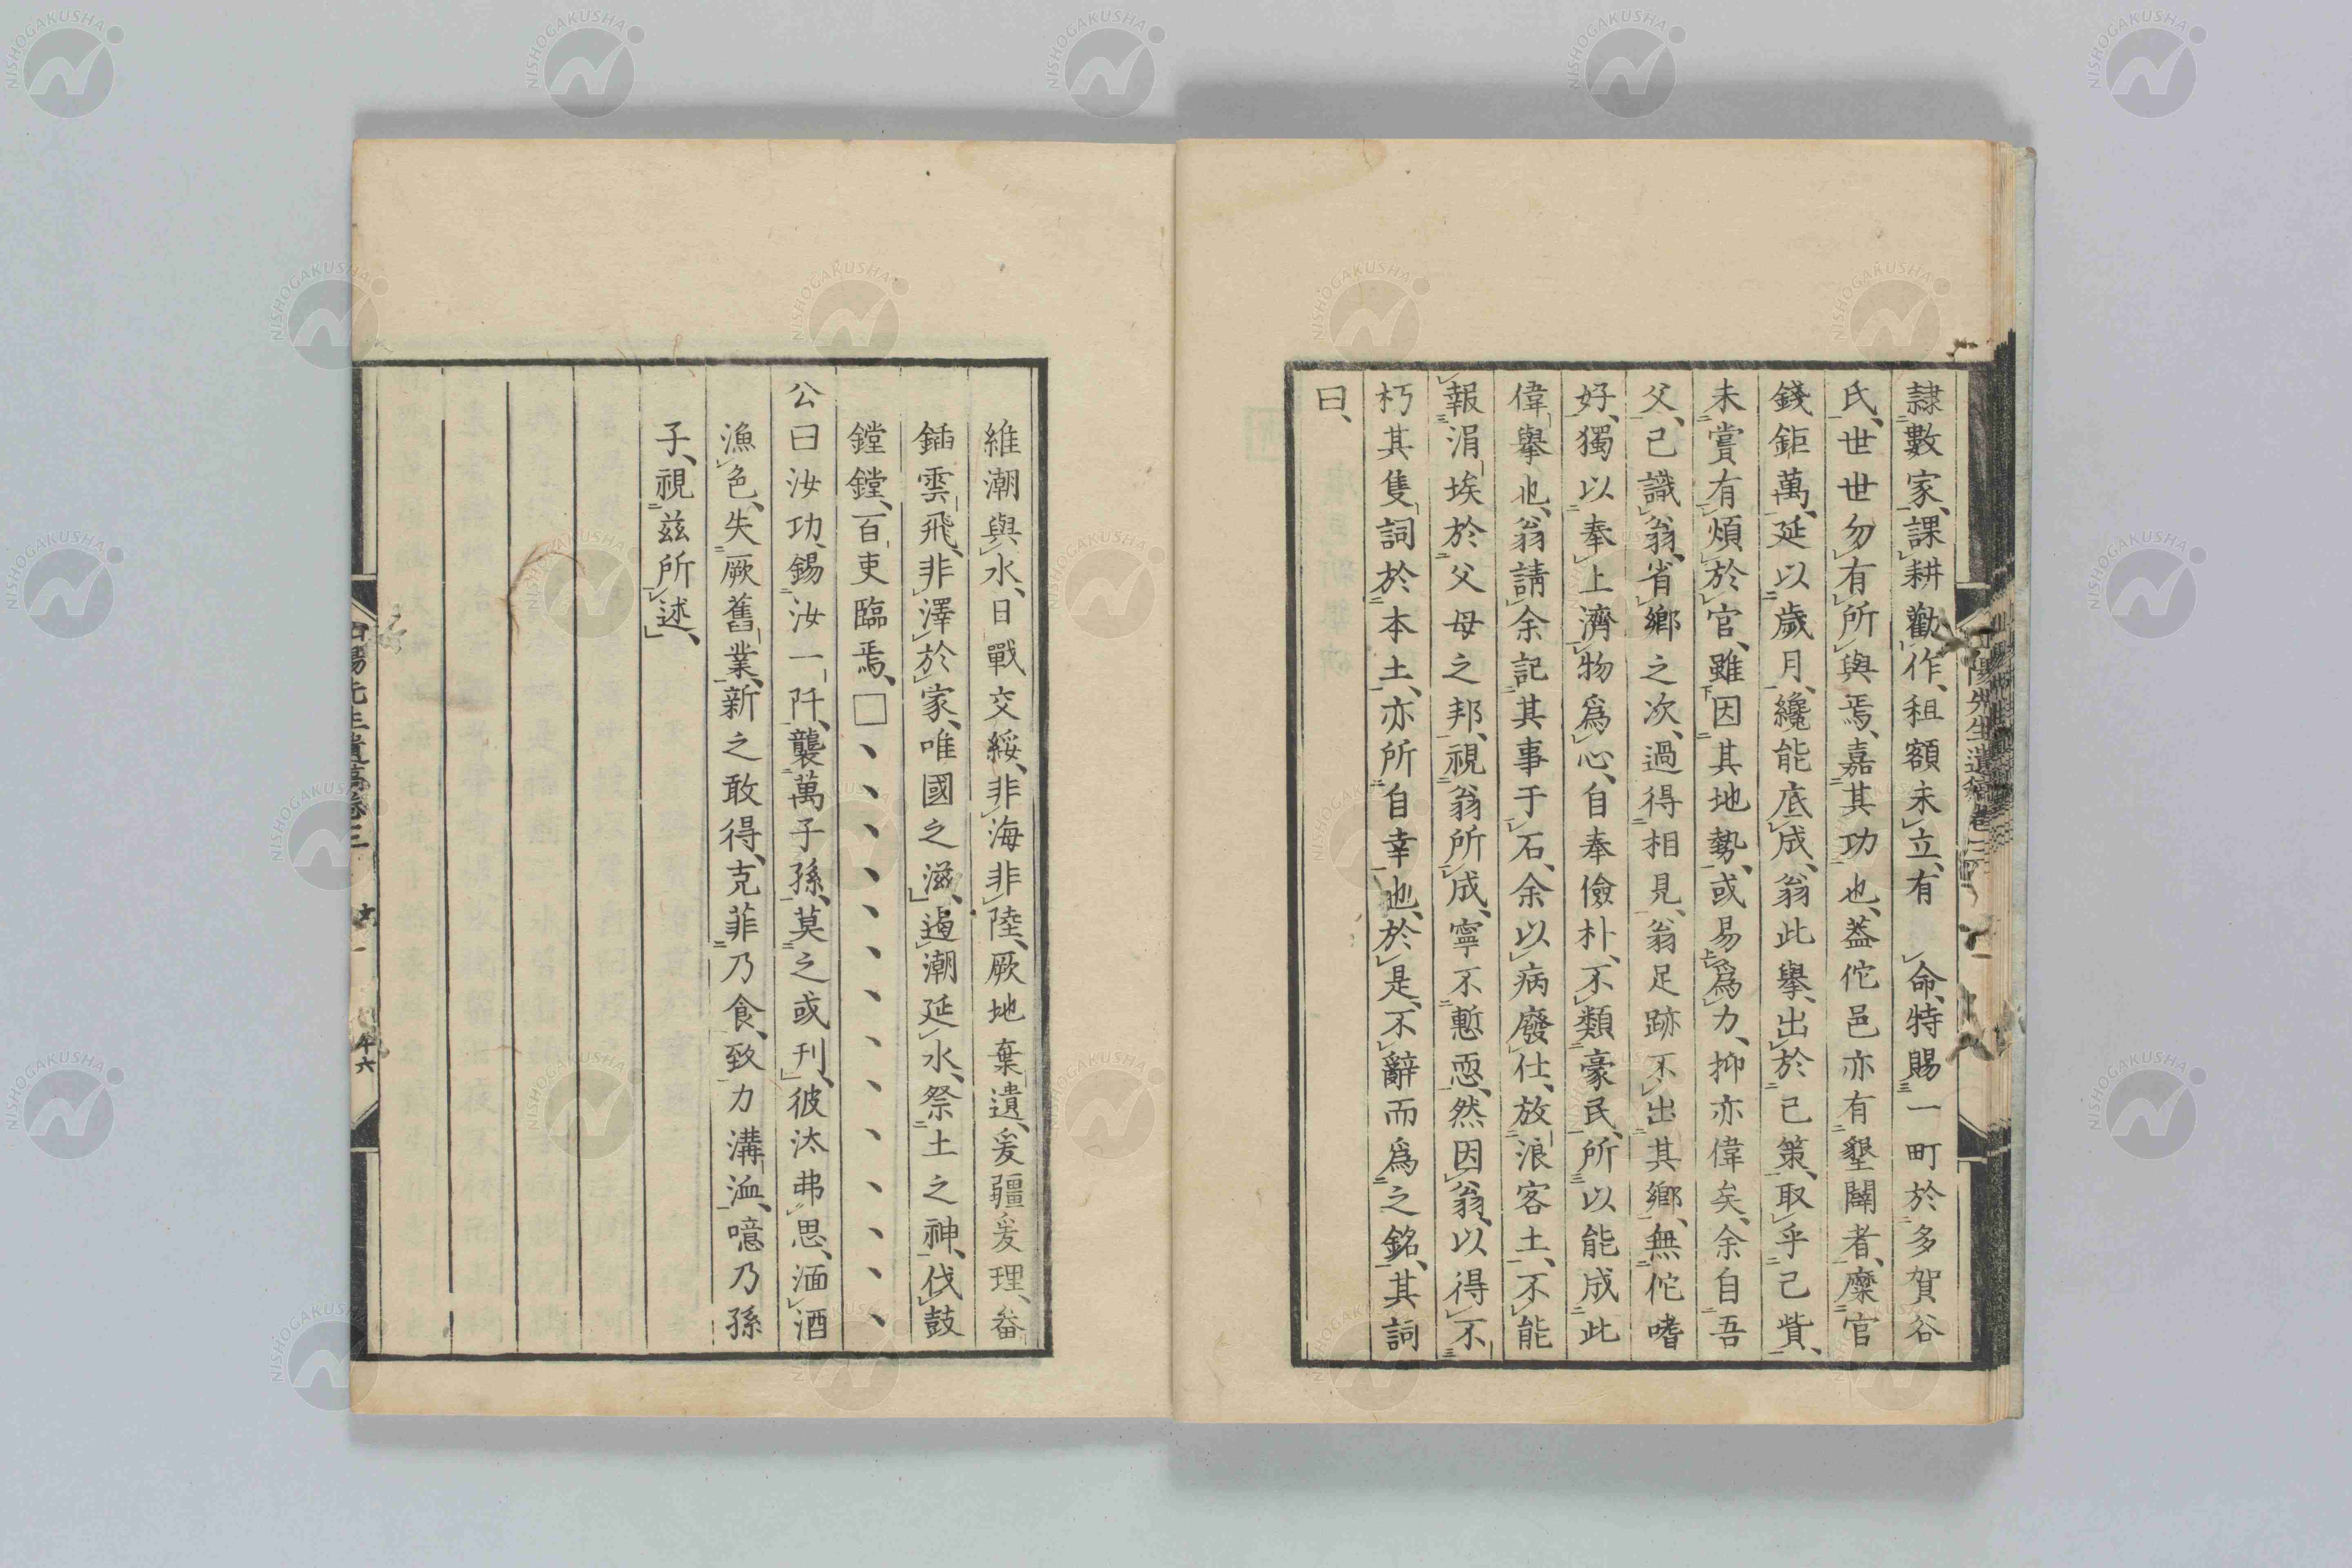 隷數家、課耕勸作、租額未立、有　命、特賜一町於多賀谷
氏、世世勿有所與焉、嘉其功也、蓋佗邑亦有墾闢者、糜官
錢鉅萬、延以歲月、纔能底成、翁此擧、出於己策、取乎己貲、
未嘗有煩於官、雖因其地勢、或易爲力、抑亦偉矣、余自吾
父、已識翁、省鄉之次、過得相見、翁足跡不出其鄉、無佗嗜
好、獨以奉上濟物爲心、自奉儉朴、不類豪民、所以能成此
偉擧也、翁請余記其事于石、余以病廢仕、放浪客土、不能
報涓埃於父母之邦、視翁所成、寧不慙恧、然因翁、以得不
朽其隻詞於本土、亦所自幸也、於是、不辭而爲之銘、其詞
曰、
維潮與水、日戰交綏、非海非陸、厥地棄遺、爰疆爰理、畚
鍤雲飛、非澤於家、唯國之滋、遏潮延水、祭土之神、伐鼓
鏜鏜、百吏臨焉、□、、、、、、、、、、、、、、
公曰汝功、錫汝一阡、襲萬子孫、莫之或刊、彼汰弗思、湎酒
漁色、失厥舊業、新之敢得、克菲乃食、致力溝洫、噫乃孫
子、視茲所述、
山陽先生遺稿卷三